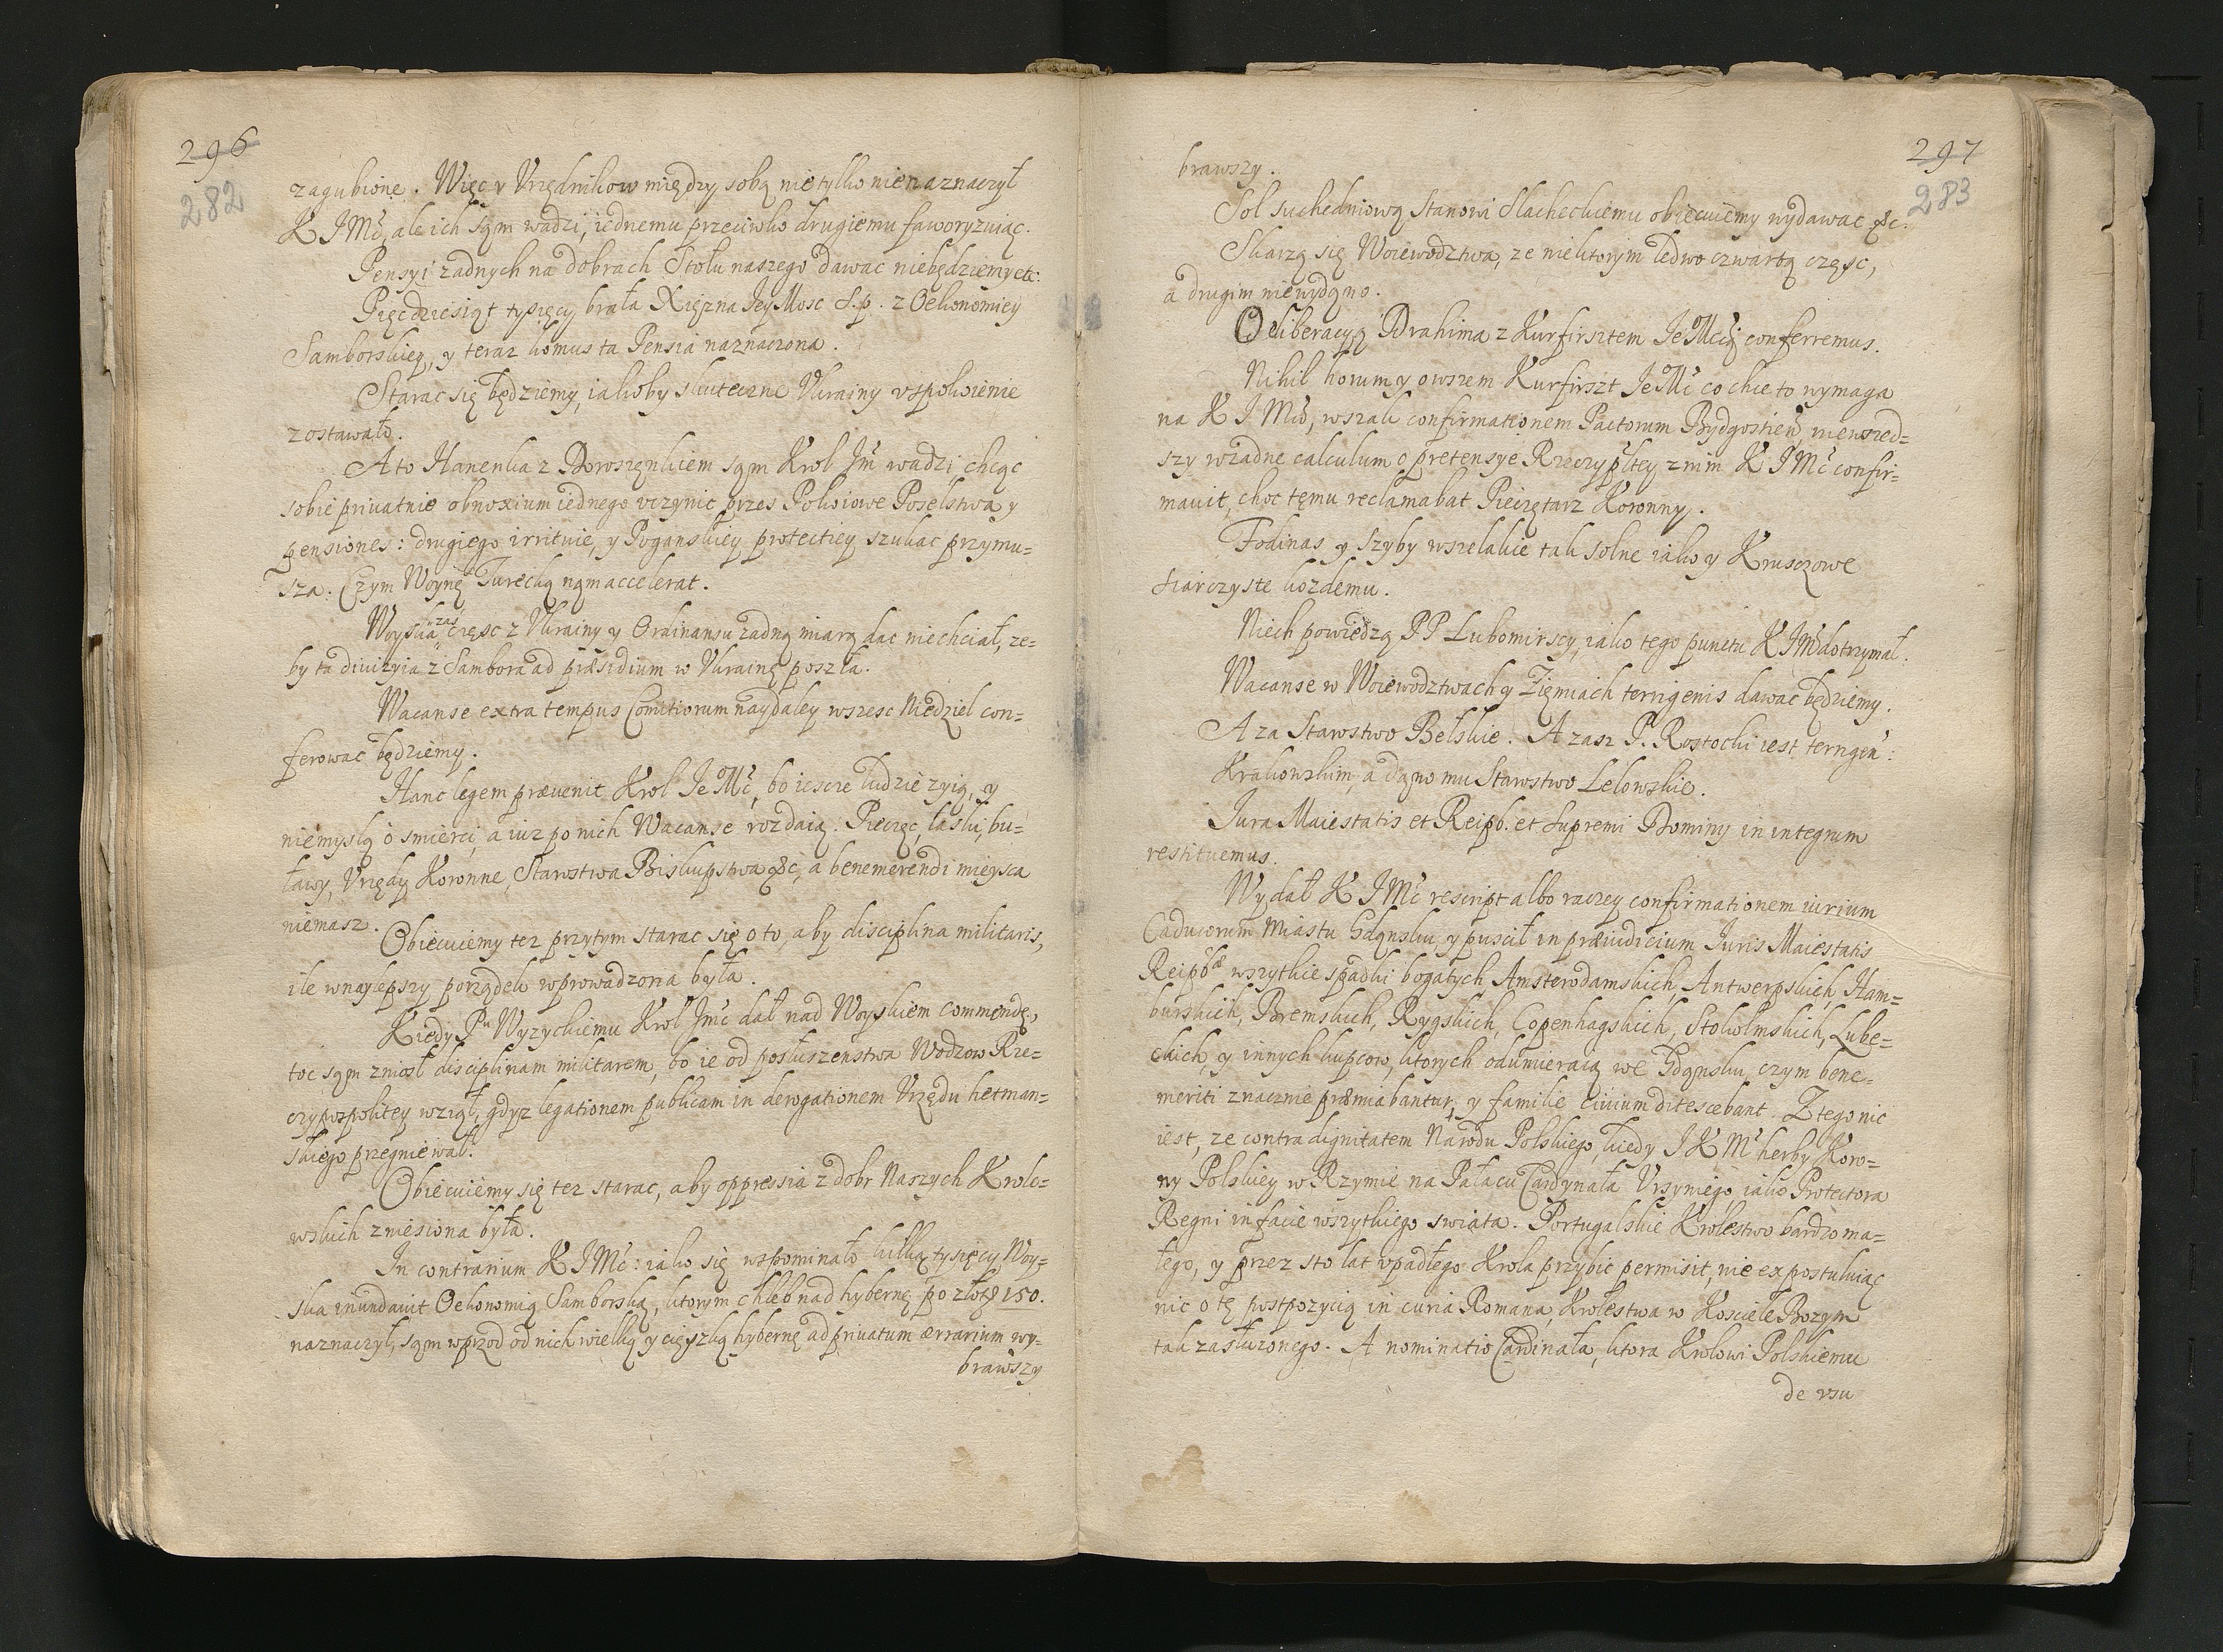 296
282
zagubione. Więc y Vrzędnikow między sobą nie tylko nienaznaczył
K J Mć, ale ich sąm wadzi, iednemu przeciwko drugiemu faworyzuiąc.
Pensyi zadnych na dobrach Stołu naszego dawac niebędziemy etc:
Pięcdziesiąt tysięcy brała Xięzna Jey Mosc S.p. z Oekonomiey
Samborskiey, y teraz komus ta Pensia naznaczona.
Starac się będziemy, iakoby skuteczne Vkrainy vspokoienie
zostawało.
A to Hanenka z Doroszęnkiem sąm Krol Jm wadzi chcąc
sobie priuatnie obnoxium iednego vczynic przes Pokoiowe Poselstwa y
pensiones: drugiego irrituie, y Poganskiey protectiey szukac przymu=
sza. Czym Woynę Turecką nąm accelerat.
Woyska zas częsc z Vkrainy y Ordinansu zadną miarą dac niechciał, ze=
by ta diuizyia z Sambora ad præsidium w Vkrainę poszła.
Wacanse extra tempus Comitiorum naydaley w szesc Niedziel con=
ferowac będziemy.
Hanc legem præuenit Krol Je Mć, bo iescze ludzie zyią, y
niemyslą o smierci, a iuz po nich Wacanse rozdaią. Pieczęc, laski, bu=
ławy, Vrzędy Koronne, Starostwa Biskupstwa &c, a benemerendi mieysca
niemasz.
Obiecuiemy tez przytym starac się o to, aby disciplina militaris,
ile w naylepszy porządek wprowadzona była.
Kiedy Pu Wyzyckiemu Krol Jmć dał nad Woyskiem commendę,
toc sąm zniosł disciplinam militarem, bo ie od posłuszenstwa Wodzow Rze=
czypospolitey wziął, gdyz legationem publicam in derogationem Vrzędu hetman=
skiego przegniewał.
Obiecuiemy się tez starac, aby oppressia z dobr Naszych Krole=
wskich zniesiona była.
In contrarium K J Mć: iako się wspominało kilką tysięcy Woy=
ska inundauit Oekonomią Samborską, ktorym chleb nad hybernę po złotych 150.
naznaczył, sąm wprzod od nich wielką y cięszką hybernę ad priuatum ærrarium wy=
brawszy
297
283
brawszy.
Sol suchedniową Stanowi Slacheckiemu obiecuiemy wydawac &c.
Skarzą się Woiewodztwa, ze niektorym ledwo czwartą częsc,
a drugim niewydąno.
O eliberacyą Drahima z Kurfirsztem Je Mcią conferremus.
Nihil horum y owszem Kurfirszt Je Mć co chce to wymaga
na K J Mci, wszak confirmationem Pactorum Bydgostien, niewszed=
szy w zadne calculum o pretensye Rzeczyplitey z nim K J Mć confir=
mauit, choc tęmu reclamabat Pieczętarz Koronny.
Fodinas y szyby wszelakie tak solne iako y Krusczowe
siarczyste kozdemu.
Niech powiedzą PP Lubomirscy, iako tego punctu K J Mć dotrzymał.
Wacanse w Woiewodztwach y Zięmiach terrigenis dawac będziemy.
A za Starostwo Bełskie. A zasz P. Rostocki iest terrigen:
Krakowskim, a dąno mu Starostwo Lelowskie.
Jura Maiestatis et Reipb. et Supremi Dominy in integrum
restituemus.
Wydał K J Mć rescript albo raczey confirmationem iurium
Caducorum Miastu Gdąnsku, y puscił in præiudicium Juris Maiestatis
Reipbæ wszytkie spadki bogatych, Amsterodamskich, Antwerpskich, Ham=
burskich, Bremskich, Rygskich, Copenhagskich, Stokolmskich, Lube=
ckich, y innych kupcow, ktorych odumieraią we Gdąnsku, czym bene=
meriti znacznie præmiabantur, y familie ciuium ditescebant. Z tego nic
iest, ze contra dignitatem Narodu Polskiego, kiedy J K Mć herby Koro=
ny Polskiey w Rzymie na Pałacu Cardynała Vrsyniego, iako Protectora
Regni in facie wszytkiego swiata. Portugalskie Krolestwo bardzo ma=
łego, y przez sto lat vpadłego Krola przybic permisit, nie expostuluiąc
nic o tę postpozycią in curia Romana, Krolestwa w Kosciele Bozym
tak zasłuzonego. A nominatio Cardinała, ktora Krolowi Polskiemu
de vsu